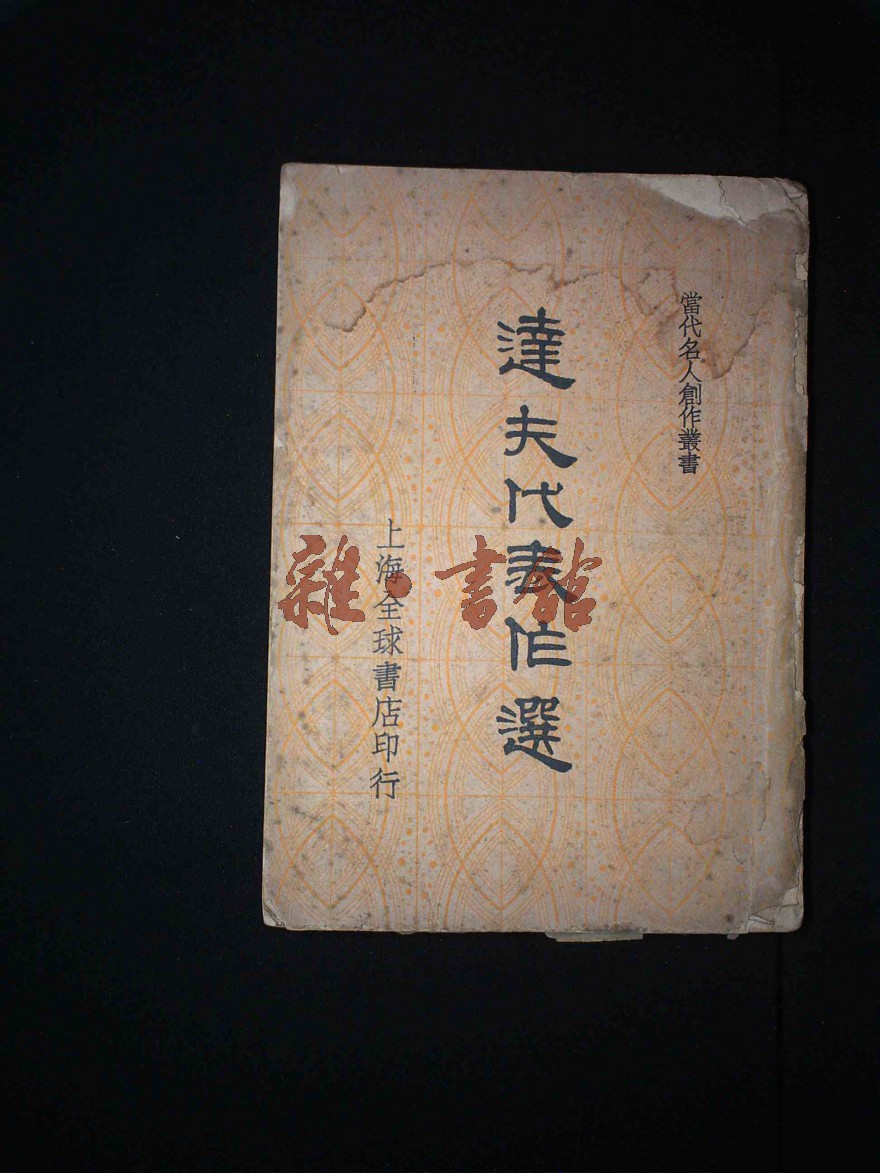 當代名人創作叢書
達夫代表作選
上海全球書店印行
雜·書館